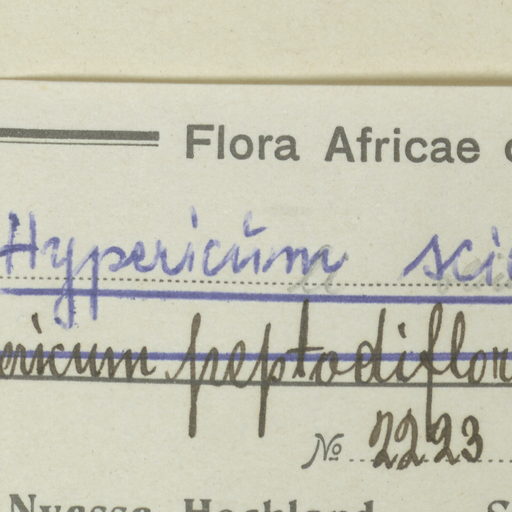 Flora Africae
Hypericum sci
ericum peptodiflor
No 2223
Nyassa Hochland